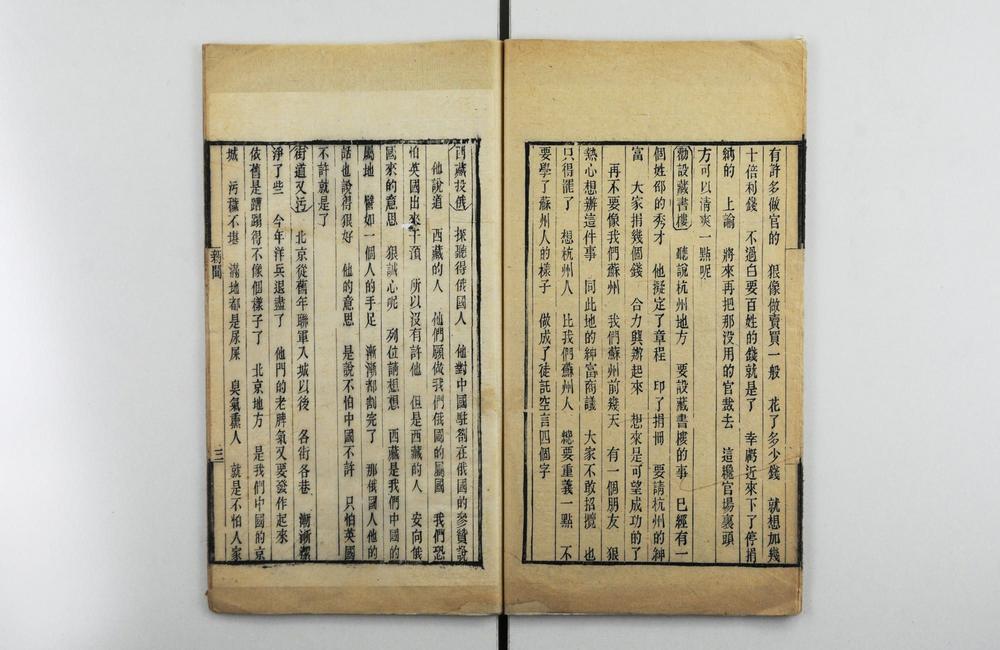 有許多做官的 狠像做賣買一般 花了多少錢 就想加幾
十倍利錢 不過白要百姓的錢就是了 幸虧近來下了停捐
納的 上諭 將來再把那沒用的官裁去 這纔官場裏頭
方可以清爽一點呢
勸設藏書樓 聽說杭州地方 要設藏書樓的事 已經有一
個姓邵的秀才 他擬定了章程 印了捐冊 要請杭州的紳
富 大家捐幾個錢 合力興辦起來 想來是可望成功的了
再不要像我們蘇州 我們蘇州前幾天 有一個朋友 狠
熱心想辦這件事 同此地的紳富商議 大家不敢招攬 也
只得罷了 想杭州人 比我們蘇州人 總要重義一點 不
要學了蘇州人的樣子 做成了徒託空言四個字
西藏投俄 探聽得俄國人 他對中國駐劄在俄國的參贊說
他說道 西藏的人 他們願做我們俄國的屬國 我們恐
怕英國出來干預 所以沒有許他 但是西藏的人 安向俄
國來的意思 狠誠心呢 列位請想想 西藏是我們中國的
屬地 譬如一個人的手足 漸漸都割完了 那俄國人他的
話也說得狠好 他的意思 是說不怕中國不許 只怕英國
不許就是了
街道又污 北京從舊年聯軍入城以後 各街各巷 漸漸潔
淨了些 今年洋兵退盡了 他門的老脾氣又要發作起來
依舊是蹧蹋得不像個樣子了 北京地方 是我們中國的京
城 污穢不堪 滿地都是尿屎 臭氣熏人 就是不怕人家
新聞
三